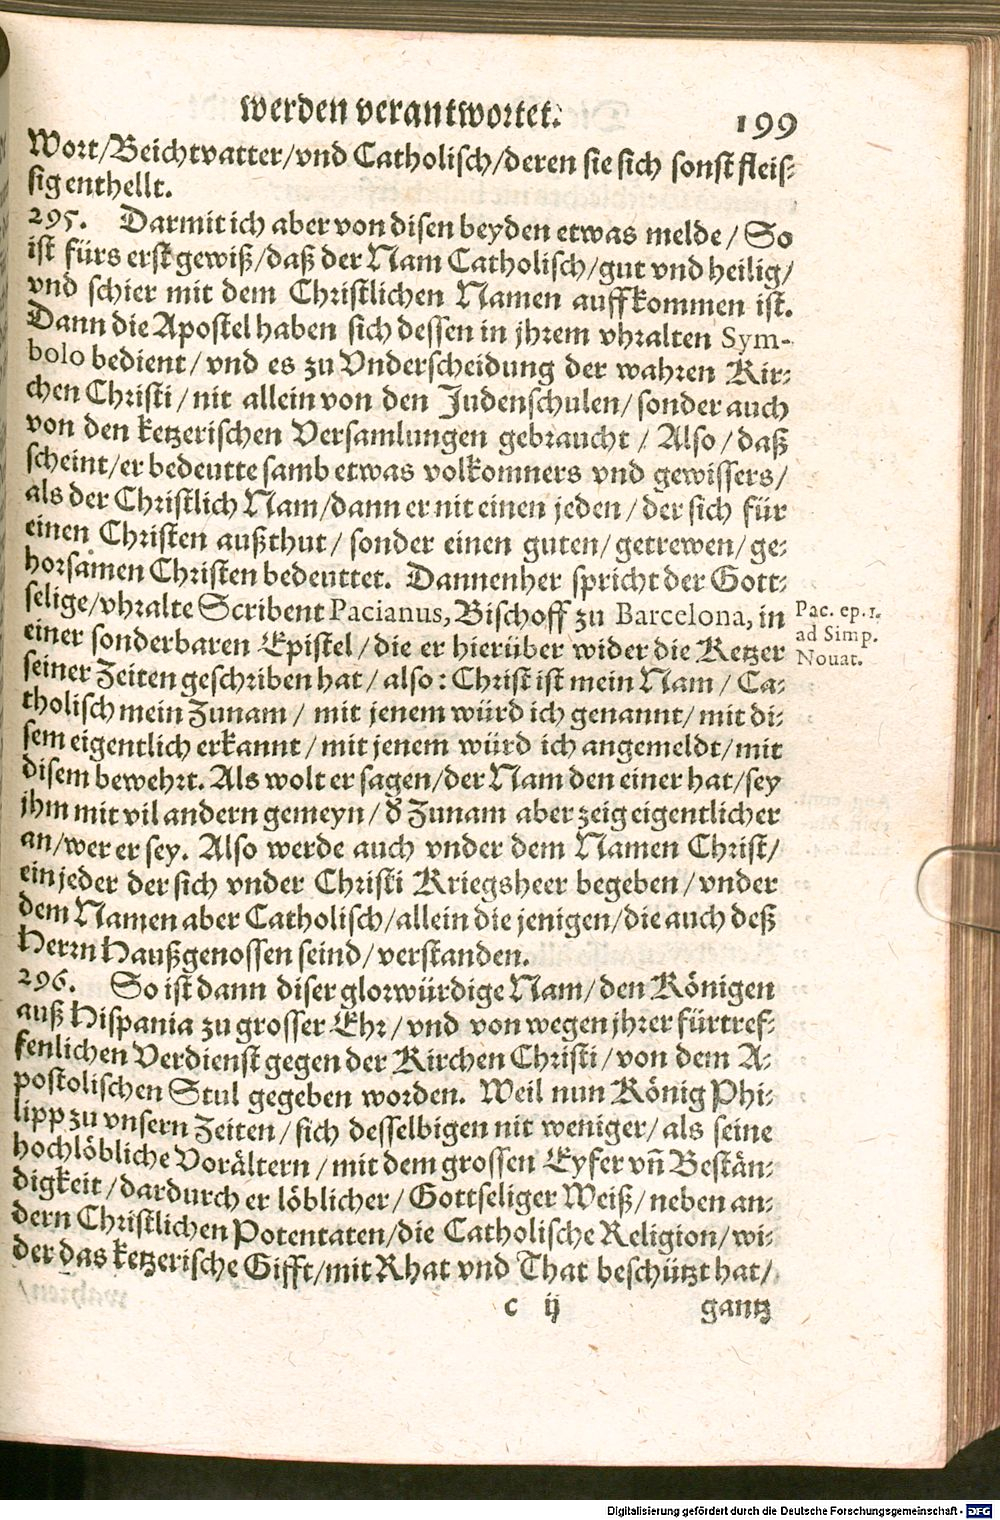 werden verantwortet. 199
Wort/Beichtvatter/vnd Catholisch/deren sie sich sonst fleis-
sig enthellt.
295. Darmit ich aber von disen beyden etwas melde/ So
ist fürs erst gewiß/daß der Nam Catholisch/gut vnd heilig/
vnd schier mit dem Christlichen Namen auffkommen ist.
Dann die Apostel haben sich dessen in jhrem vhralten Sym-
bolo bedient/ vnd es zu Vnderscheidung der wahren Kir-
chen Christi/ nit allein von den Judenschulen/ sonder auch
von den ketzerischen Versamlungen gebraucht/ Also/ daß
scheint/er bedeutte samb etwas volkomners vnd gewissers/
als der Christlich Nam/dann er nit einen jeden/ der sich für
einen Christen außthut/ sonder einen guten/ getrewen/ ge-
horsamen Christen bedeuttet. Dannenher spricht der Gott-
selige/vhralte Scribent Pacianus, Bischoff zu Barcelona, in
einer sonderbaren Epistel/ die er hierüber wider die Ketzer
seiner Zeiten geschriben hat/ also: Christ ist mein Nam/ Ca-
tholisch mein Zunam/ mit jenem würd ich genannt/ mit di-
sem eigentlich erkannt/ mit jenem würd ich angemeldt/ mit
disem bewehrt. Als wolt er sagen/der Nam den einer hat/sey
jhm mit vil andern gemeyn/ d̕ Zunam aber zeig eigentlicher
an/wer er sey. Also werde auch vnder dem Namen Christ/
ein jeder der sich vnder Christi Kriegsheer begeben/ vnder
dem Namen aber Catholisch/allein die jenigen/die auch deß
Herrn Haußgenossen seind/ verstanden.
296. So ist dann diser glorwürdige Nam/ den Königen
auß Hispania zu grosser Ehr/ vnd von wegen jhrer fürtref-
fenlichen Verdienst gegen der Kirchen Christi/ von dem A-
postolischen Stul gegeben worden. Weil nun König Phi-
lipp zu vnsern Zeiten/ sich desselbigen nit weniger/ als seine
hochlöbliche Vorältern/ mit dem grossen Eyfer vñ Bestän-
digkeit/ dardurch er löblicher/ Gottseliger Weiß/ neben an-
dern Christlichen Potentaten/die Catholische Religion/ wi-
der das ketzerische Gifft/mit Rhat vnd That beschützt hat/
c ij gantz
Pac. ep. 1.
ad Simp.
Nouat.
Digitalisierung gefördert durch die Deutsche Forschungsgemeinschaft - DFG